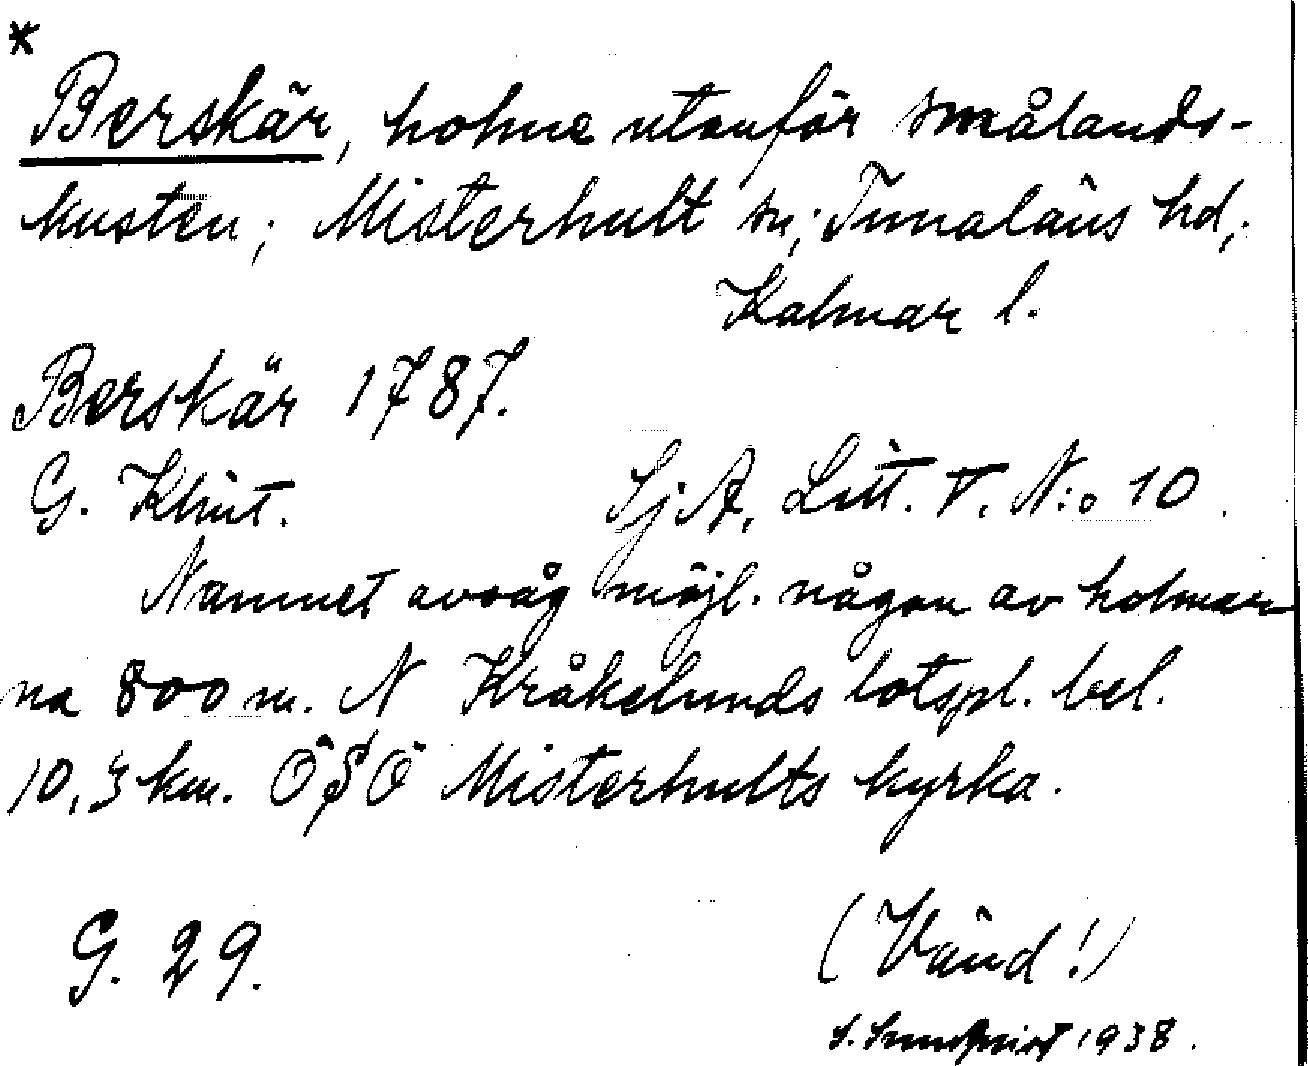 *
Berskär, holme utanför smålands-
kusten; Misterhult sn; Tunaläns hd;
Kalmar l.
Berskär 1787.
G. Klint. SjA, Litt. V. N:o 10.
Namnet avsåg möjl. någon av holmar-
na 800 m. N Kråkelunds lotspl. bel.
10,3 km. ÖSÖ Misterhults kyrka.
G. 29. (Vänd!)
1938.